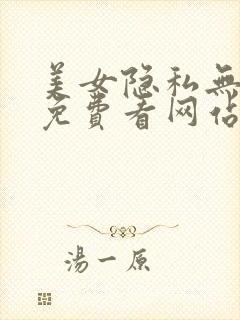 美女隐私無
免費看网佔
湯一原